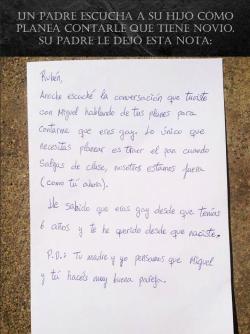 UN PADRE ESCUCHA A SU HIJO COMO
PLANEA CONTARLE QUE TIENE NOVIO.
SU PADRE LE DEJÓ ESTA NOTA:
Rubén,
Anoche escuché la conversación que tuviste
con Miguel hablando de tus planes para
contarme que eres gay. Lo único que
necesitas planear es traer el pan cuando
salgas de clase, nosotros estamos fuera
(como tú ahora).
He sabido que eras gay desde que tenías
6 años y te he querido desde que naciste.
P.D.: Tu madre y yo pensamos que Miguel
y tú hacéis muy buena pareja.